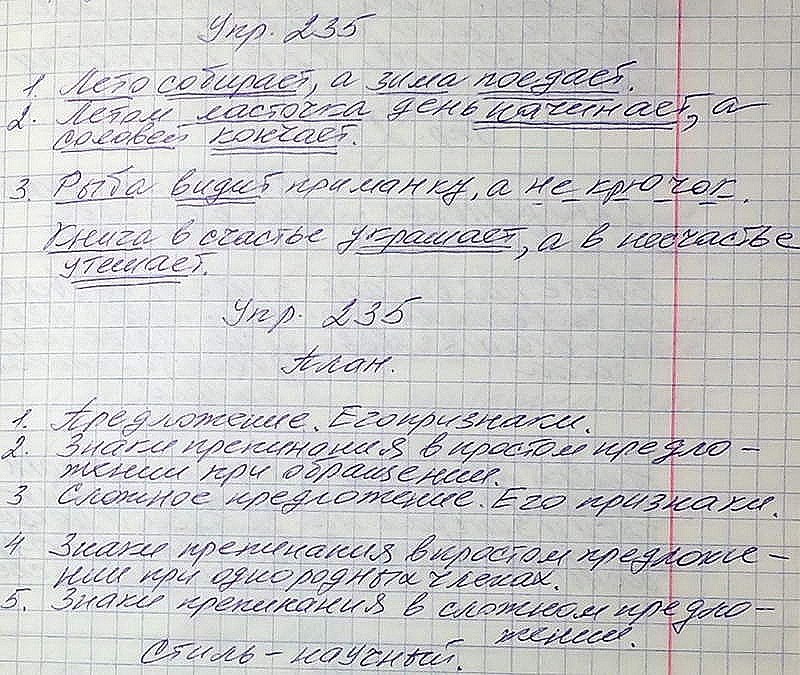 Упр. 235
1. Лето собирает, а зима поедает.
2. Летом ласточка день начинает, а
соловей кончает.
3. Рыба видит приманку, а не крючок.
Книга в счастье украшает, а в несчастье
утешает.
Упр. 235
План.
1. Предложение. Его признаки.
2. Знаки препинания в простом предло-
жении при обращении.
3 Сложное предложение. Его признаки.
4 Знаки препинания в простом предложе-
нии при однородных членах.
5. Знаки препинания в сложном предло-
жении.
Стиль - научный.